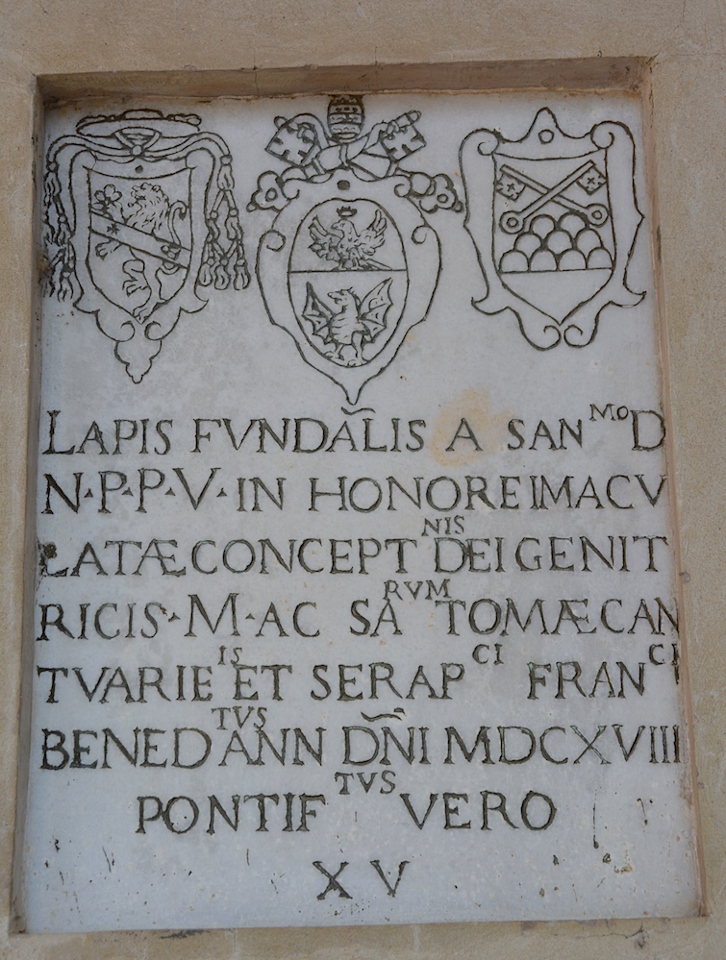 LAPIS FVNDALIS A SANMO D
N·P·P·V·IN HONORE IMACV
LATÆ CONCEPTNIS DEI GENIT
RICIS·M·AC SARVM TOMÆ CAN
TVARIEIS ET SERAPCI FRANCI
BENEDTVS ANN DÑI MDCXVIII
PONTIFTVS VERO
XV